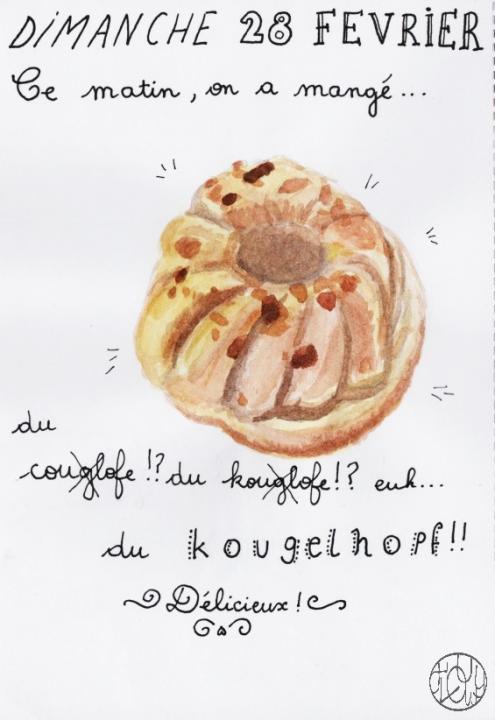 DIMANCHE 28 FEVRIER
Ce matin, on a mangé...
du
couglofe !? du kouglofe !? euh...
du kougelhopf !!
Délicieux !